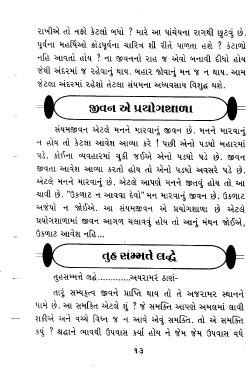 રાખીએ તો નફો કેટલો બધો ? મારે આ પાંચેયના રાગથી છુટવું છે.
પૂર્વના મહર્ષિઓ ક્રોડપૂર્વના ચારિત્ર શી રીતે પાળતા હશે ? કંટાળો
નહિ આવતો હોય ? ના જીવનનો રાહ જ એવો બનાવી દીધો હોય
જેથી અંદરમાં જ રહેવાનું થાય. બહાર જોવાનું મન જ ન થાય. આમ
જેટલા અંદરમાં રહેશો તેટલા સંયમના અધ્યવસાય વિશુદ્ધ થશે.
જીવન એ પ્રયોગશાળા
સંયમજીવન એટલે મનને મારવાનું જીવન છે. મનને મારવાનું
ન હોય તો કેટલા આવેશ આવ્યા કરે ! પછી એનો પડઘો બહારમાં
પડે. કોઈના વ્યવહારમાં ચુકી જઈએ એનો પડઘો પડે છે. જીવન
જીવતા આવેશ આવ્યા કરતો હોય તો એનો પડઘો અવસરે પડે છે.
એટલે મનને મારવાનું છે. એટલે આપણે મનને જીતવું હોય તો આ
ચાવી છે. "ઉકળાટ ન આવવા દેવો" મન મારવાનું જીવન છે. ઉકળાટ
અજંપો ન જોઈએ. આ સંયમજીવન એ પ્રયોગશાળા છે એટલે
પ્રયોગશાળામાં જીવન આગળ ચલાવવું હોય તો આનું મંથન જોઈએ,
ઉકળાટ આવેશ નહિ...
તુહ સમ્મત્તે લદ્ધે
તુહસમ્મત્તે લદ્ધે..............અયરામરં ઠાણં-
તારું સમ્યકૃત્વ જીવને પ્રાપ્તિ થાય તો તે અજરામર સ્થાનને
પામે છે. આ સમકિત એટલે શું ? જે સમકિત આપણે અમલમાં લાવી
શકીએ અને વચ્ચે વિઘ્ન જ ન આવે એવું સમકિત. તો એ સમકિત
કયું ? શ્રદ્ધાને ભાવથી ઉપવાસ કર્યો હોય ને જેમ જેમ ઉપવાસ વધે
૧૩